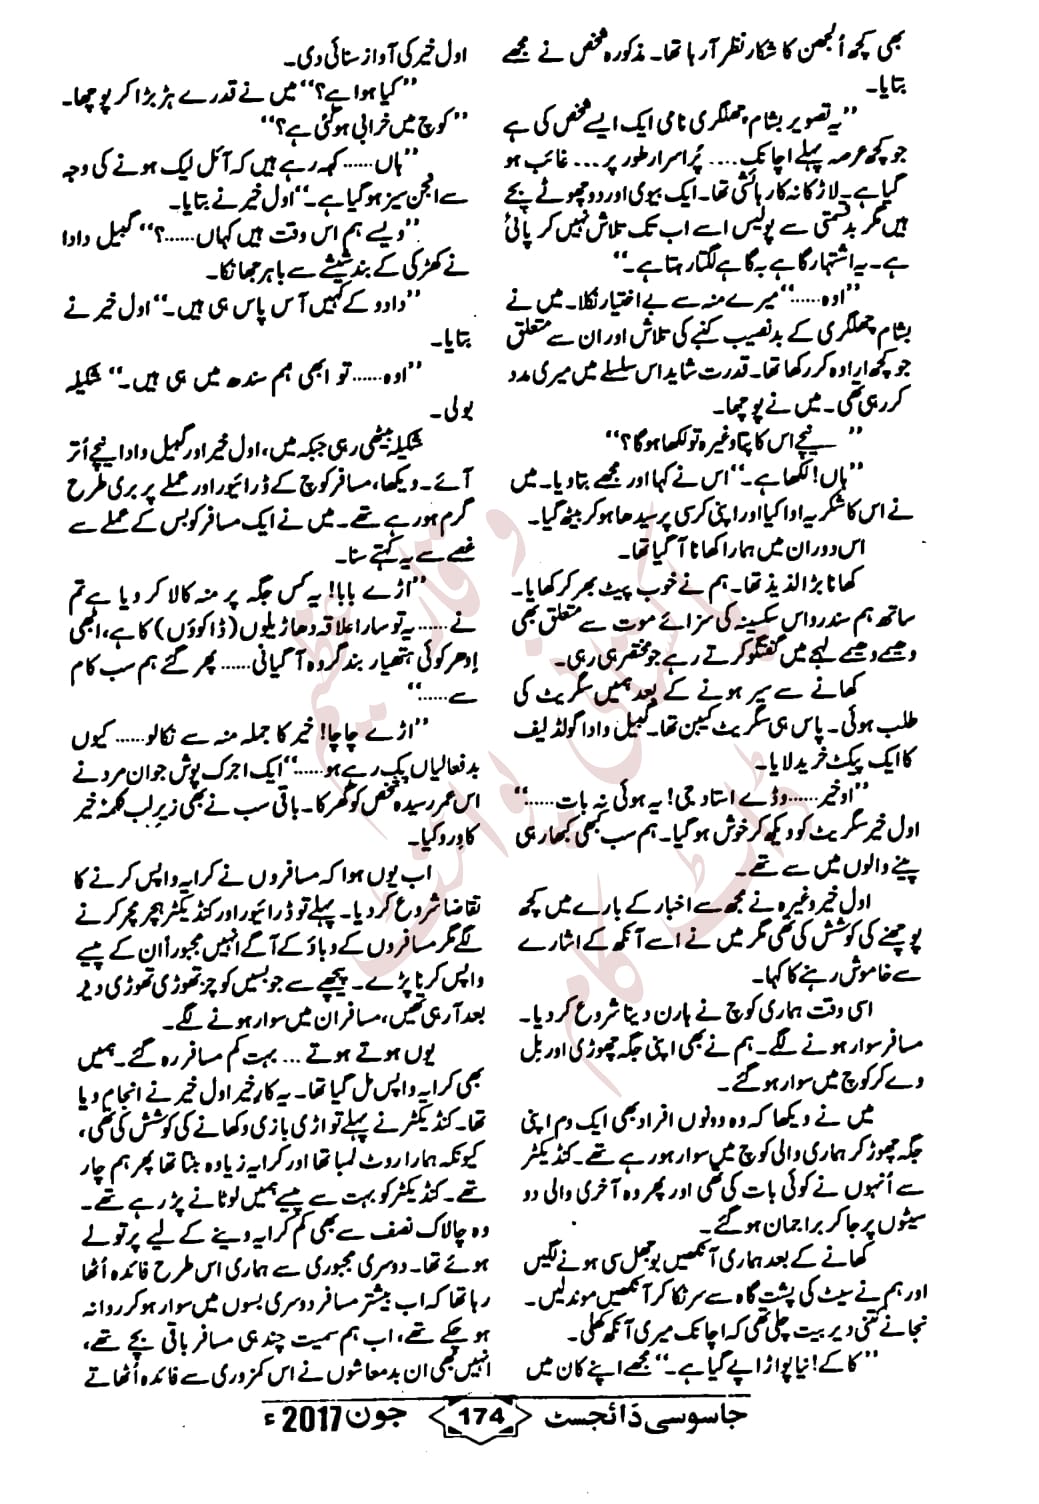 بھی کچھ اُلجھن کا شکار نظر آرہا تھا۔ مذکورہ شخص نے مجھے
بتایا۔
”یہ تصویر بشام چھلگری نامی ایک ایسے شخص کی ہے
جو کچھ عرصہ پہلے اچانک.... پُراسرار طور پر... غائب ہو
گیا ہے۔ لاڑکانہ کا رہائشی تھا۔ ایک بیوی اور دو چھوٹے بچے
ہیں مگر بدقسمتی سے پولیس اسے اب تک تلاش نہیں کر پائی
ہے۔ یہ اشتہار گاہے بہ گاہے لگتا رہتا ہے۔“
”اوہ......“ میرے منہ سے بے اختیار نکلا۔ میں نے
بشام چھلگری کے بدنصیب کنبے کی تلاش اور ان سے متعلق
جو کچھ ارادہ کر رکھا تھا۔ قدرت شاید اس سلسلے میں میری مدد
کر رہی تھی۔ میں نے پوچھا۔
”نیچے اس کا پتا وغیرہ تو لکھا ہوگا؟“
”ہاں! لکھا ہے۔“ اس نے کہا اور مجھے بتا دیا۔ میں
نے اس کا شکریہ ادا کیا اور اپنی کرسی پر سیدھا ہو کر بیٹھ گیا۔
اس دوران میں ہمارا کھانا آ گیا تھا۔
کھانا بڑا لذیذ تھا۔ ہم نے خوب پیٹ بھر کر کھایا۔
ساتھ ہم سندر داس سکسینہ کی سزائے موت سے متعلق بھی
دھیمے دھیمے لہجے میں گفتگو کرتے رہے جو مختصر ہی رہی۔
کھانے سے سیر ہونے کے بعد ہمیں سگریٹ کی
طلب ہوئی۔ پاس ہی سگریٹ کیبن تھا۔ کبیل دادا گولڈ لیف
کا ایک پیکٹ خرید لایا۔
”او خیر...... وڈے استاد جی! یہ ہوئی نہ بات......“
اول خیر سگریٹ کو دیکھ کر خوش ہو گیا۔ ہم سب کبھی کبھار ہی
پینے والوں میں سے تھے۔
اول خیر وغیرہ نے مجھ سے اخبار کے بارے میں کچھ
پوچھنے کی کوشش کی تھی مگر میں نے اسے آنکھ کے اشارے
سے خاموش رہنے کا کہا۔
اسی وقت ہماری کوچ نے ہارن دینا شروع کر دیا۔
مسافر سوار ہونے لگے۔ ہم نے بھی اپنی جگہ چھوڑی اور بل
دے کر کوچ میں سوار ہو گئے۔
میں نے دیکھا کہ وہ دونوں افراد بھی ایک دم اپنی
جگہ چھوڑ کر ہماری والی کوچ میں سوار ہو رہے تھے۔ کنڈیکٹر
سے اُنہوں نے کوئی بات کی تھی اور پھر وہ آخری والی دو
سیٹوں پر جا کر براجمان ہو گئے۔
کھانے کے بعد ہماری آنکھیں بوجھل سی ہونے لگیں
اور ہم نے سیٹ کی پشت گاہ سے سر ٹکا کر آنکھیں موند لیں۔
نجانے کتنی دیر بیت چلی تھی کہ اچانک میری آنکھ کھلی۔
”کاکے! نیا پواڑا پے گیا ہے۔“ مجھے اپنے کان میں
اول خیر کی آواز سنائی دی۔
”کیا ہوا ہے؟“ میں نے قدرے ہڑبڑا کر پوچھا۔
”کوچ میں خرابی ہو گئی ہے؟“
”ہاں...... کہہ رہے ہیں کہ آئل لیک ہونے کی وجہ
سے انجن سیز ہو گیا ہے۔“ اول خیر نے بتایا۔
”ویسے ہم اس وقت ہیں کہاں......؟“ کبیل دادا
نے کھڑکی کے بند شیشے سے باہر جھانکا۔
”دادو کے کہیں آس پاس ہی ہیں۔“ اول خیر نے
بتایا۔
”اوہ...... تو ابھی ہم سندھ میں ہی ہیں۔“ شکیلہ
بولی۔
شکیلہ بیٹھی رہی جبکہ میں، اول خیر اور کبیل دادا نیچے اُتر
آئے۔ دیکھا، مسافر کوچ کے ڈرائیور اور عملے پر بری طرح
گرم ہو رہے تھے۔ میں نے ایک مسافر کو بس کے عملے سے
غصے سے یہ کہتے سنا۔
”اڑے بابا! یہ کس جگہ پر منہ کالا کر دیا ہے تم
نے...... یہ تو سارا علاقہ دھاڑیلوں (ڈاکوؤں) کا ہے، ابھی
اِدھر کوئی ہتھیار بند گروہ آ گیا نی...... پھر گئے ہم سب کام
سے......“
”اڑے چاچا! خیر کا جملہ منہ سے نکالو...... کیوں
بدفعالیاں بک رہے ہو......“ ایک اجرک پوش جوان مرد نے
اس عمر رسیدہ شخص کو گھرکا۔ باقی سب نے بھی زیرِ لب کلمۂ خیر
کا وِرد کیا۔
اب یوں ہوا کہ مسافروں نے کرایہ واپس کرنے کا
تقاضا شروع کر دیا۔ پہلے تو ڈرائیور اور کنڈیکٹر ہچر مچر کرنے
لگے مگر مسافروں کے دباؤ کے آگے انہیں مجبوراً ان کے پیسے
واپس کرنا پڑے۔ پیچھے سے جو بسیں کوچز تھوڑی تھوڑی دیر
بعد آ رہی تھیں، مسافر ان میں سوار ہونے لگے۔
یوں ہوتے ہوتے ... بہت کم مسافر رہ گئے۔ ہمیں
بھی کرایہ واپس مل گیا تھا۔ یہ کارِ خیر اول خیر نے انجام دیا
تھا۔ کنڈیکٹر نے پہلے تو اڑی بازی دکھانے کی کوشش کی تھی،
کیونکہ ہمارا روٹ لمبا تھا اور کرایہ زیادہ بنتا تھا پھر ہم چار
تھے۔ کنڈیکٹر کو بہت سے پیسے ہمیں لوٹانے پڑ رہے تھے۔
وہ چالاک نصف سے بھی کم کرایہ دینے کے لیے پر تولے
ہوئے تھا۔ دوسری مجبوری سے ہماری اس طرح فائدہ اُٹھا
رہا تھا کہ اب بیشتر مسافر دوسری بسوں میں سوار ہو کر روانہ
ہو چکے تھے، اب ہم سمیت چند ہی مسافر باقی بچے تھے،
انہیں بھی ان بدمعاشوں نے اس کمزوری سے فائدہ اُٹھاتے
جاسوسی ڈائجسٹ 174 جون 2017ء